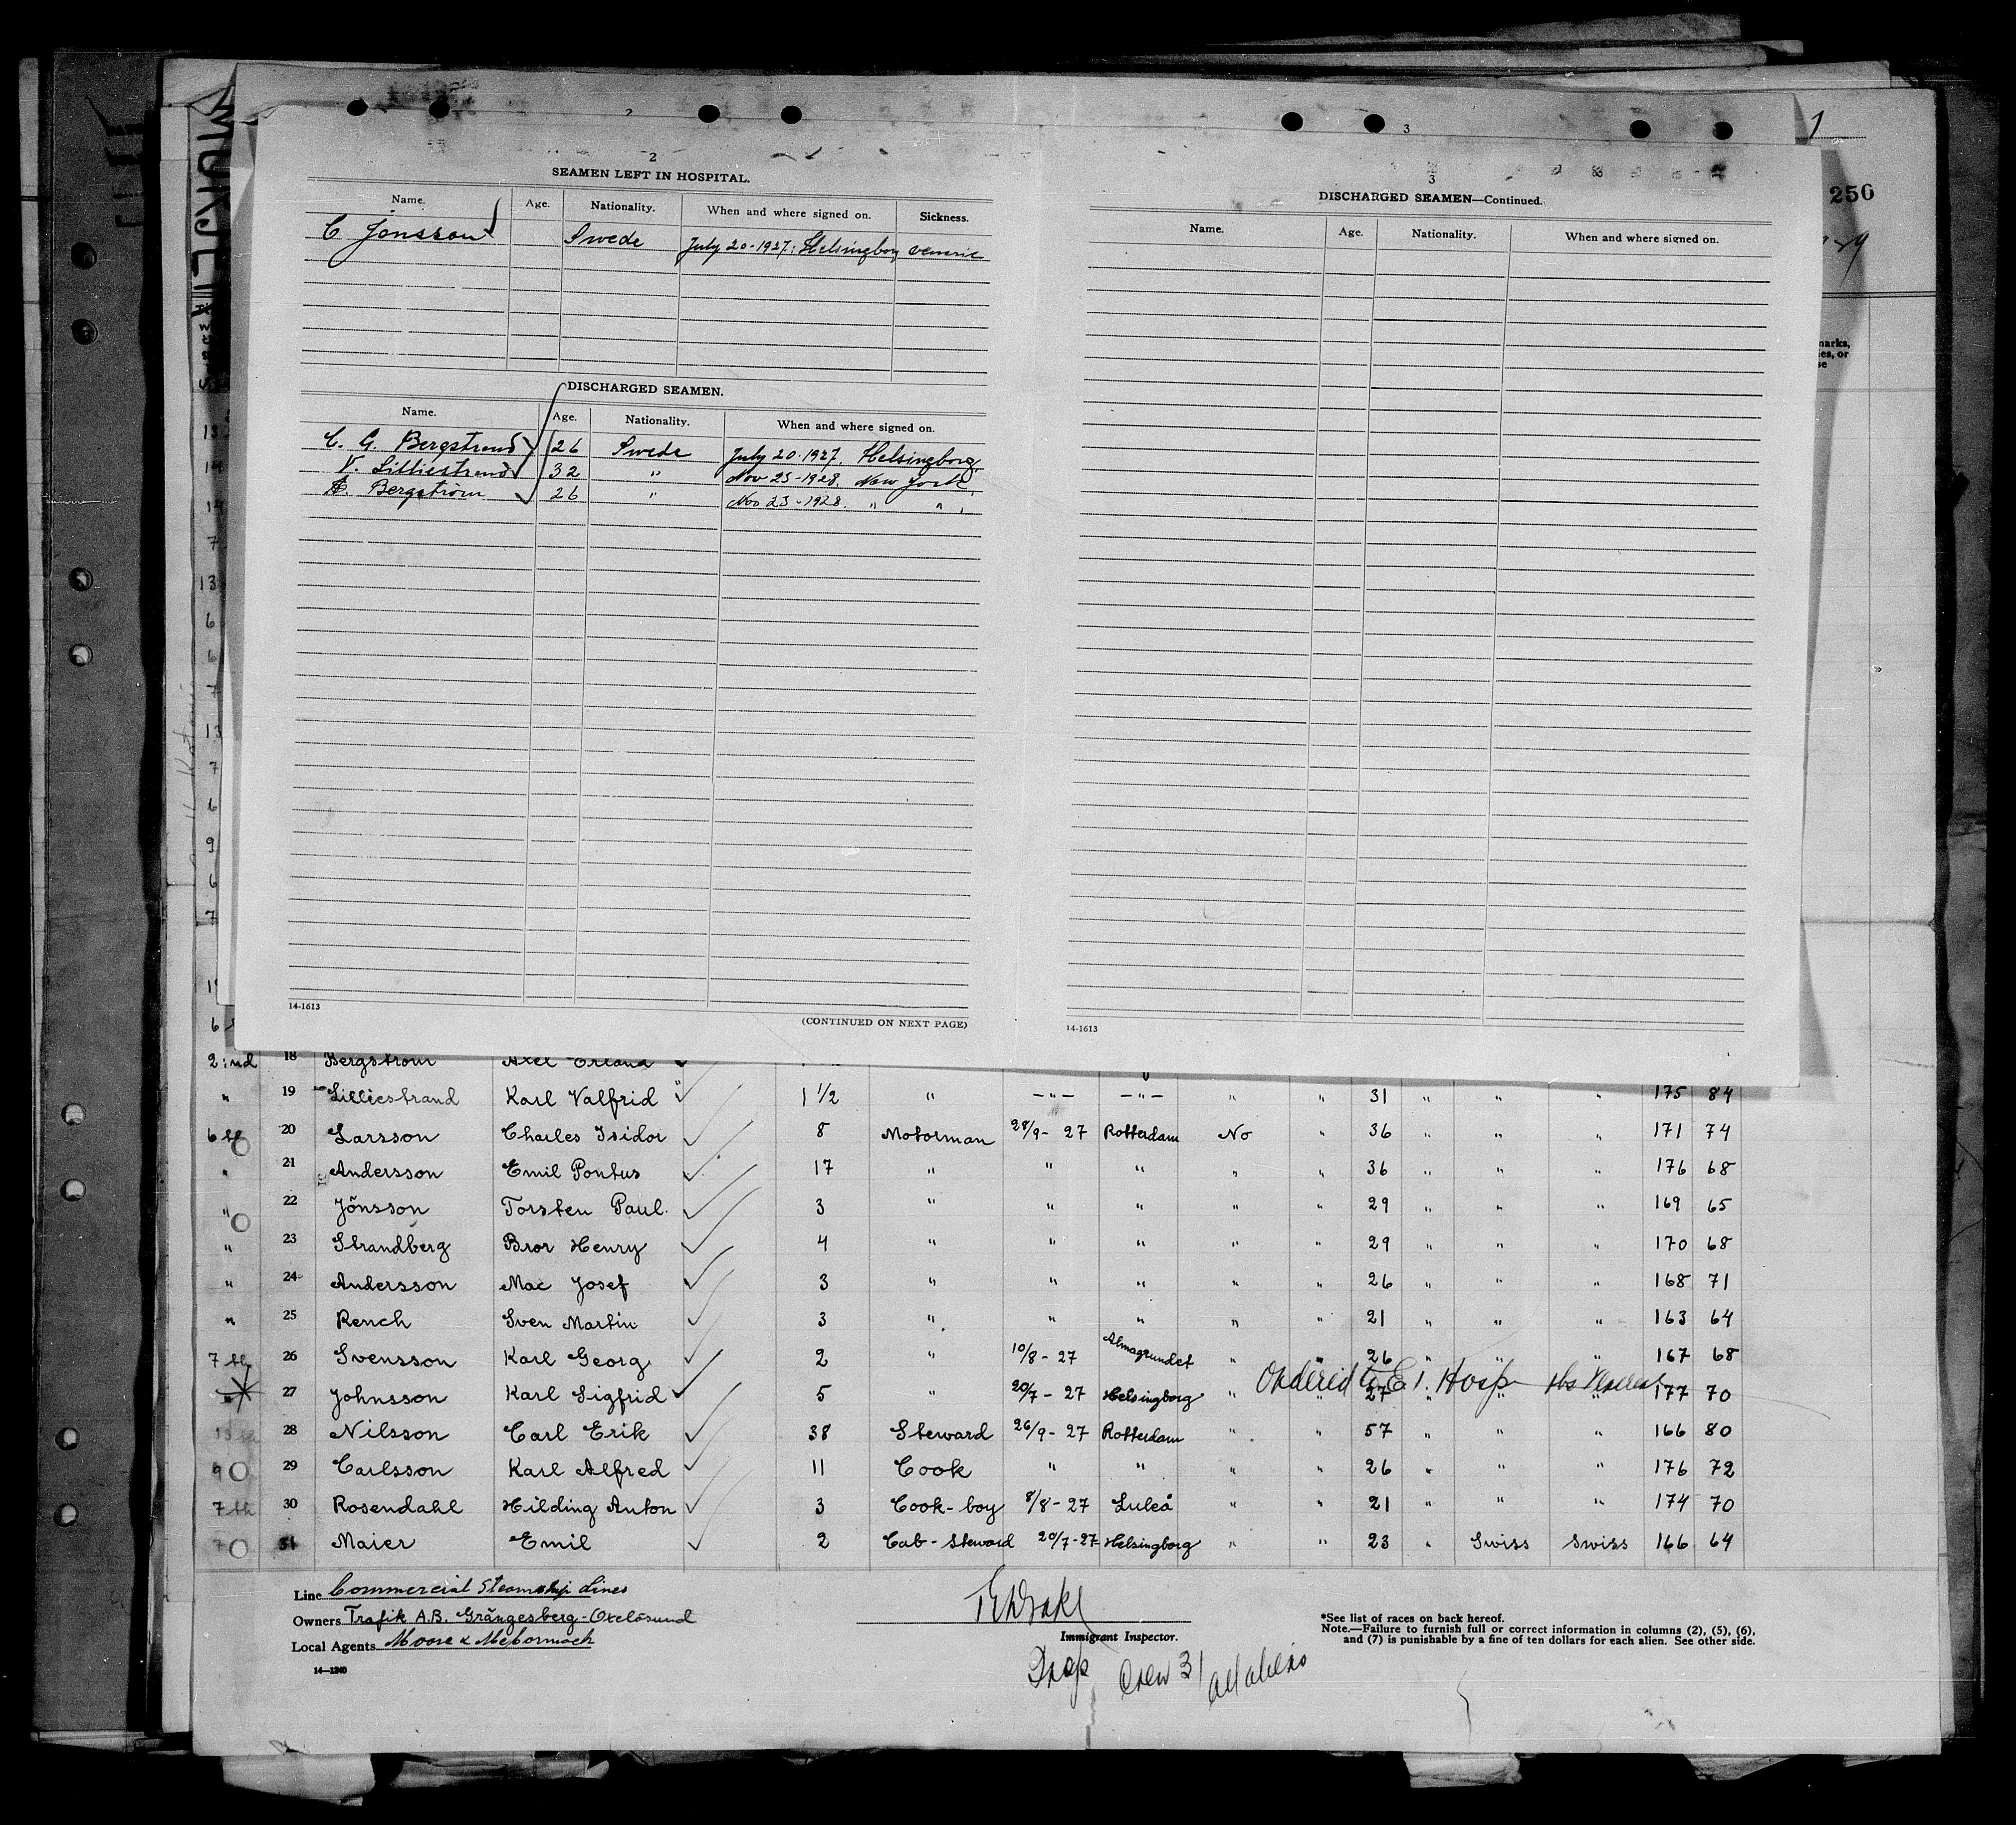 2
3
1
2
SEAMEN LEFT IN HOSPITAL.
Name. Age. Nationality. When and where signed on. Sickness.
C Jonsson Swede July 20-1927; Helsingborg
DISCHARGED SEAMEN.
Name. Age. Nationality. When and where signed on.
C. G. Bergstrand 26 Swede July 20-1927, Helsingborg
V. Lilliestrand 32 " Nov 23-1928. New York,
A. Bergström 26 " Nov 23-1928. " "
14-1613
(CONTINUED ON NEXT PAGE)
3
DISCHARGED SEAMEN—Continued.
Name. Age. Nationality. When and where signed on.
14-1613
256
marks,
2:nd 18 Bergstrom Axel Erland
" 19 Lilliestrand Karl Valfrid " 1 1/2 " —"— —"— " " 31 " " " 175 84
6 th 20 Larsson Charles Isidor 8 Motorman 28/9- 27 Rotterdam No " 36 " " " 171 74
" 21 Andersson Emil Pontus 17 " " " " " 36 " " " 176 68
" 22 Jönsson Torsten Paul. 3 " " " " " 29 " " " 169 65
" 23 Strandberg Bror Henry 4 " " " " " 29 " " " 170 68
" 24 Andersson Mac Josef 3 " " " " " 26 " " " 168 71
" 25 Rench Sven Martin 3 " " " " " 21 " " " 163 64
7 th 26 Svensson Karl Georg 2 " 10/8 - 27 Almagrundet " " 26 " " " 167 68
27 Johnsson Karl Sigfrid 5 " 20/7 - 27 Helsingborg " Ordered to E.I. Hosp 27 " " 177 70
28 Nilsson Carl Erik 38 Steward 26/9 - 27 Rotterdam " " 57 " " " 166 80
9 29 Carlsson Karl Alfred 11 Cook " " " " 26 " " " 176 72
7 th 30 Rosendahl Hilding Anton 3 Cook-boy 8/8 - 27 Luleå " " 21 " " " 174 70
7 31 Maier Emil 2 Cab-Steward 20/7-27 Helsingborg " " 23 " Swiss Swiss 166 64
Line Commercial Steamship Lines
Owners Trafik A.B. Grängesberg-Oxelösund
Local Agents Moore & McCormack
14—1240
Immigrant Inspector.
Crew 31 all aliens
*See list of races on back hereof.
Note.—Failure to furnish full or correct information in columns (2), (5), (6),
and (7) is punishable by a fine of ten dollars for each alien. See other side.